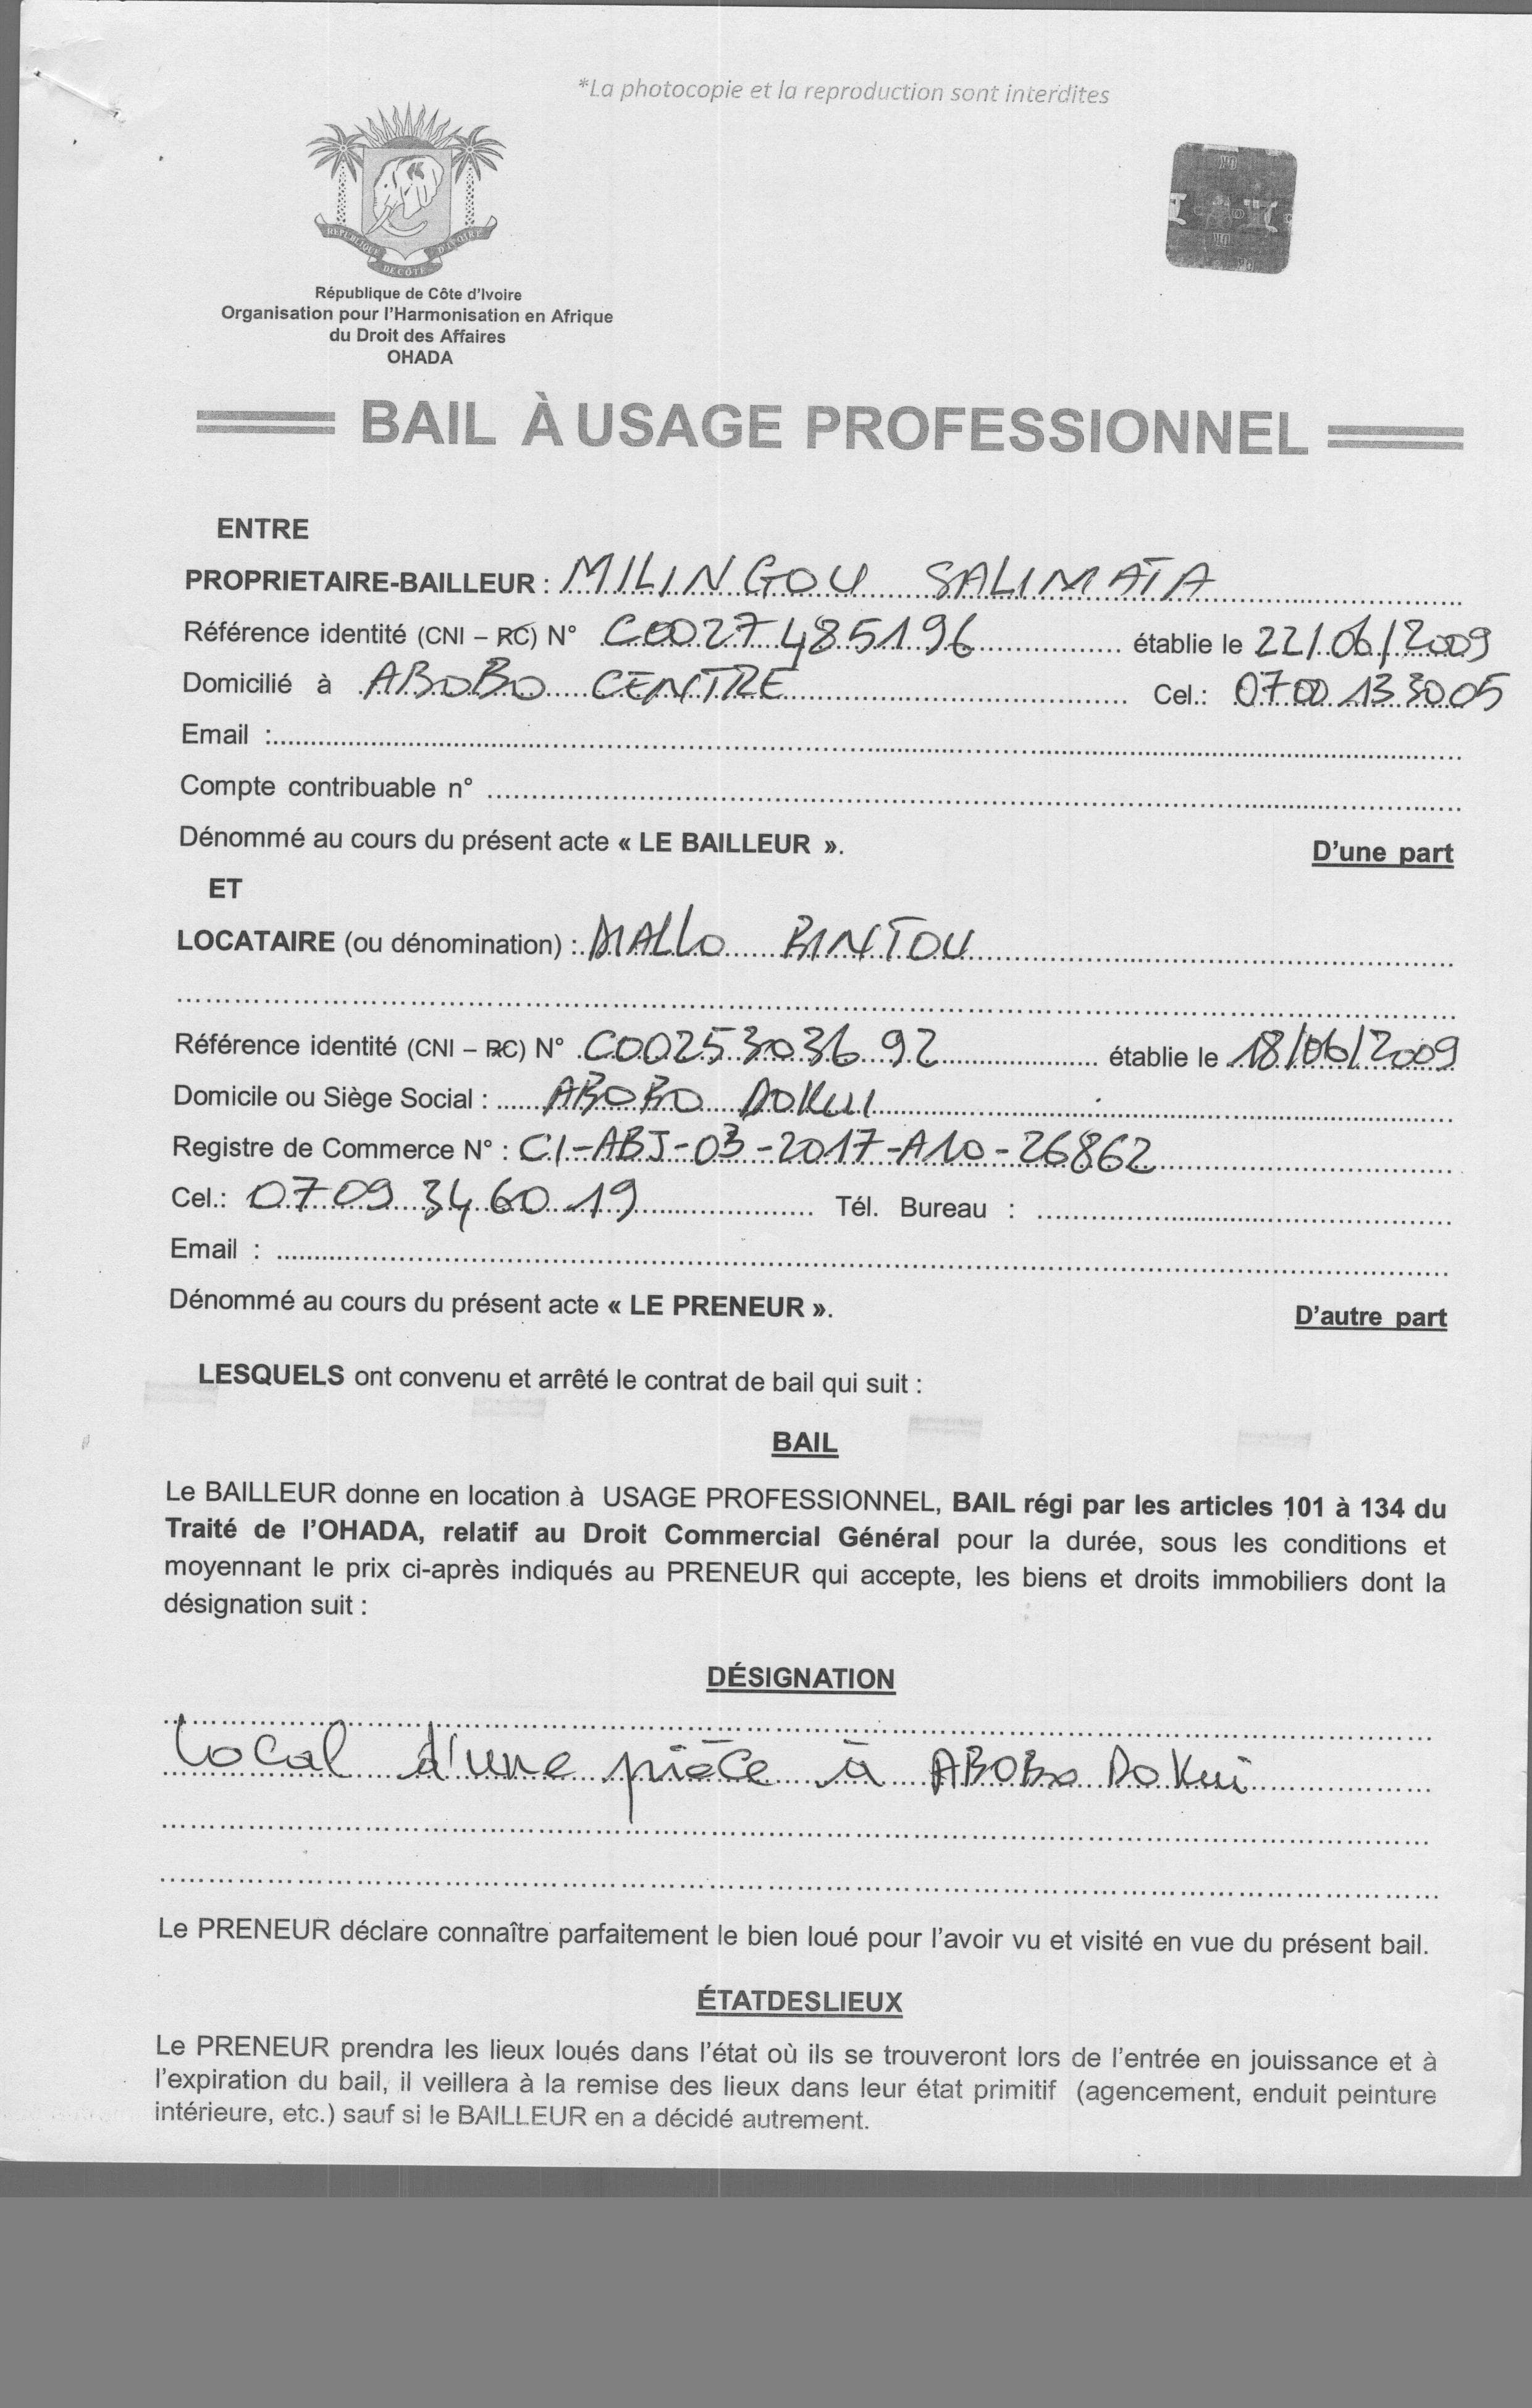 *La photocopie et la reproduction sont interdites
REPUBLIQUE DE CÔTE D'IVOIRE
République de Côte d'Ivoire
Organisation pour l'Harmonisation en Afrique
du Droit des Affaires
OHADA
BAIL À USAGE PROFESSIONNEL
ENTRE
PROPRIETAIRE-BAILLEUR : MILINGOU SALIMATA
Référence identité (CNI – RC) N° C00274485196 établie le 22/06/2009
Domicilié à ABOBO CENTRE Cel.: 07 00 13 30 05
Email :
Compte contribuable n°
Dénommé au cours du présent acte « LE BAILLEUR ».
D'une part
ET
LOCATAIRE (ou dénomination) : DIALLO BINTOU
Référence identité (CNI – RC) N° C0025303692 établie le 18/06/2009
Domicile ou Siège Social : ABOBO DOKUI
Registre de Commerce N° : CI-ABJ-03-2017-A10-26862
Cel.: 07 09 34 60 19 Tél. Bureau :
Email :
Dénommé au cours du présent acte « LE PRENEUR ».
D'autre part
LESQUELS ont convenu et arrêté le contrat de bail qui suit :
BAIL
Le BAILLEUR donne en location à USAGE PROFESSIONNEL, BAIL régi par les articles 101 à 134 du
Traité de l'OHADA, relatif au Droit Commercial Général pour la durée, sous les conditions et
moyennant le prix ci-après indiqués au PRENEUR qui accepte, les biens et droits immobiliers dont la
désignation suit :
DÉSIGNATION
Local d'une pièce à ABOBO DOKui
Le PRENEUR déclare connaître parfaitement le bien loué pour l'avoir vu et visité en vue du présent bail.
ÉTATDESLIEUX
Le PRENEUR prendra les lieux loués dans l'état où ils se trouveront lors de l'entrée en jouissance et à
l'expiration du bail, il veillera à la remise des lieux dans leur état primitif (agencement, enduit peinture
intérieure, etc.) sauf si le BAILLEUR en a décidé autrement.